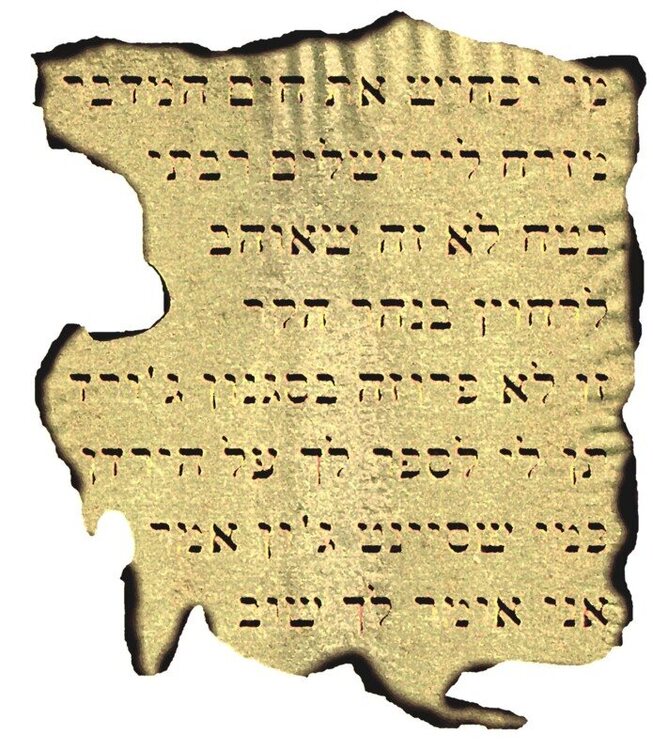 מי יכחיש את הים המדברי
מזרח לירושלים רבתי
בטח לא זה שאוהב
לרחוץ בנהר הקר
זו לא פרוזה בסגנון ג'ורד
תן לי לספר לך על הירדן
כמו שסיינט ג'ון אמר
אני אומר לך שוב